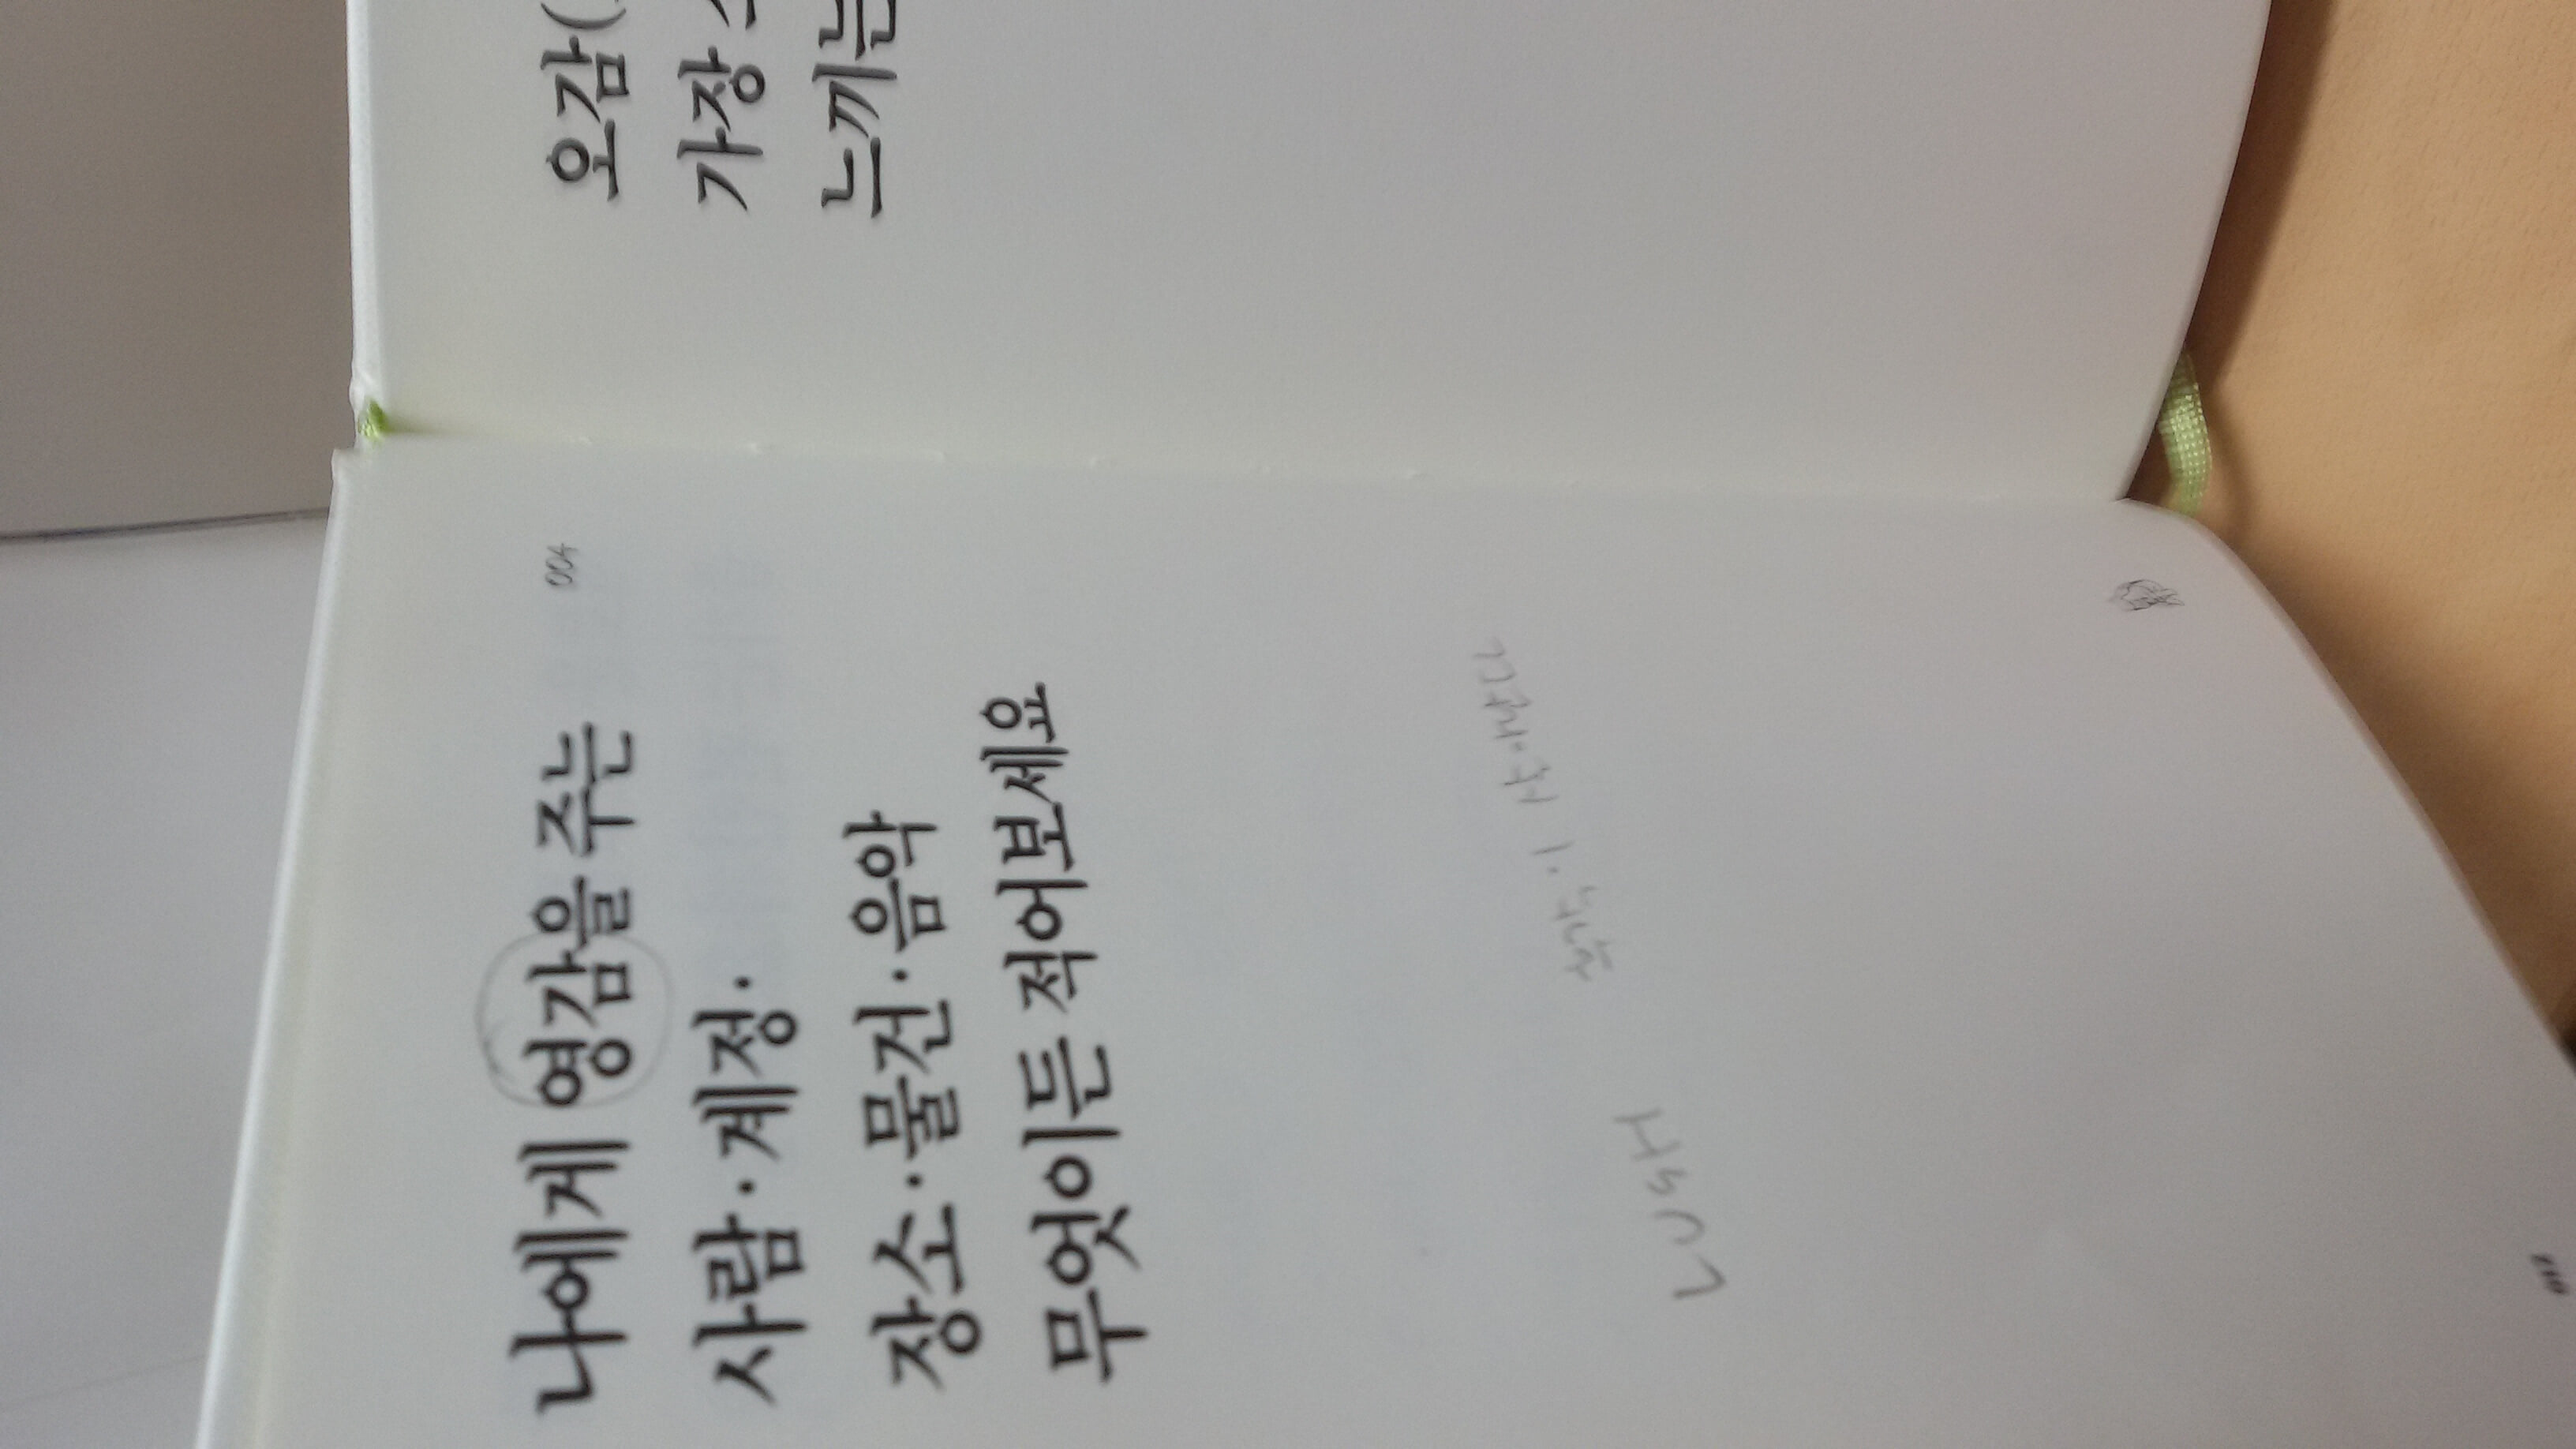 004
나에게 영감을 주는
사람·계정·
장소·물건·음악
무엇이든 적어보세요
LUSH
오감(
가장
느끼는